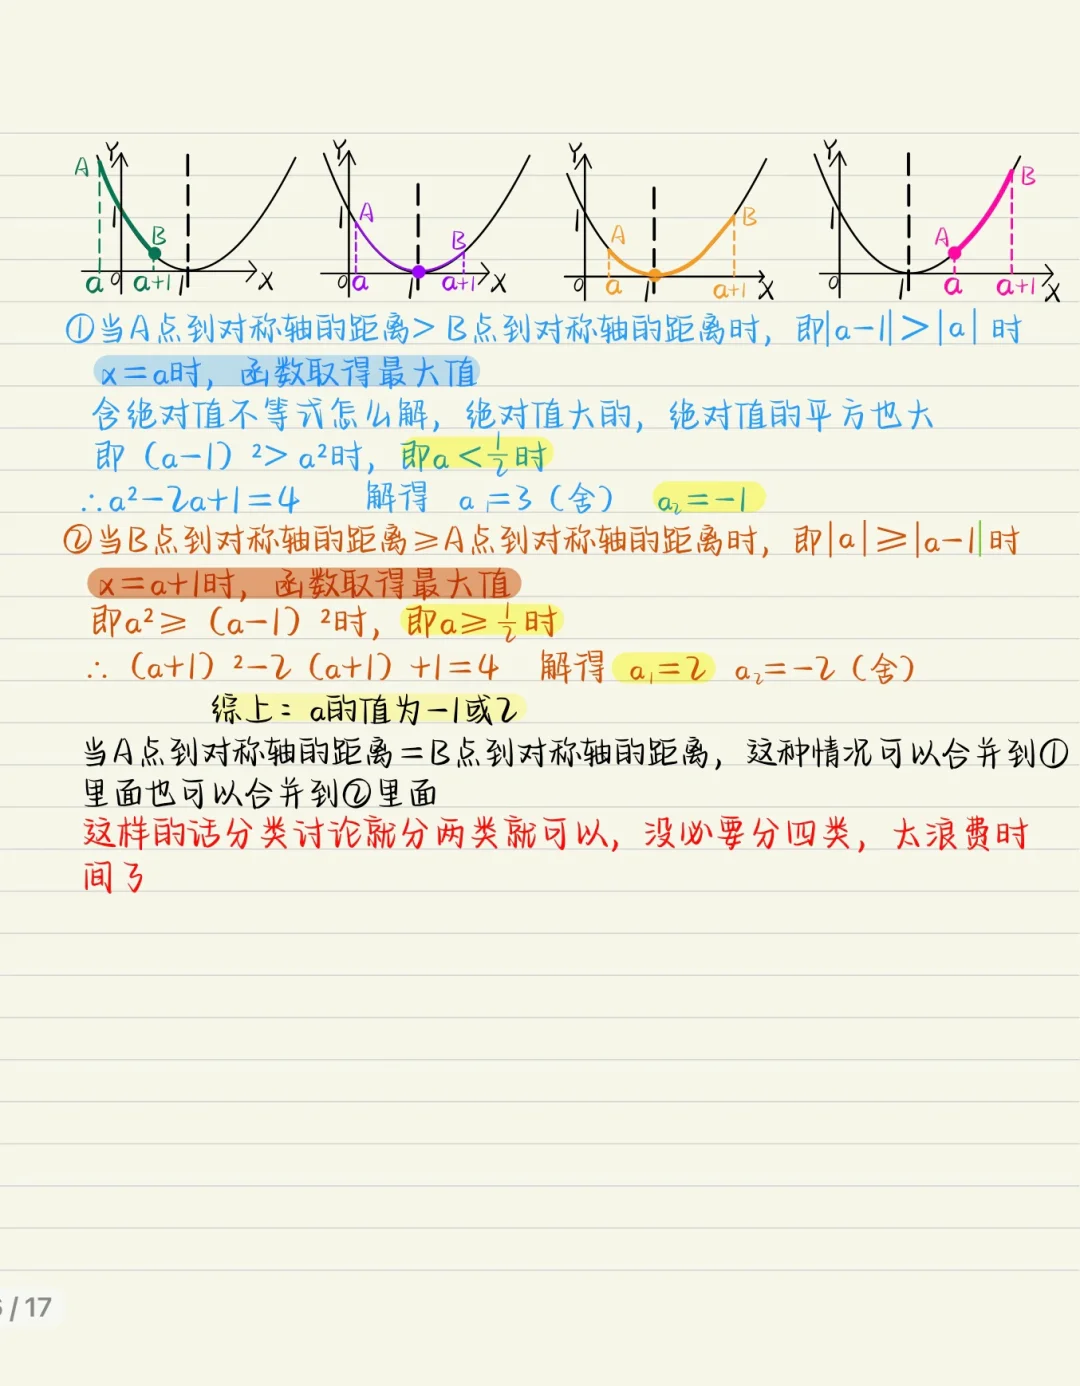 Y Y Y Y
A B A B A B A B
1 1 1 1
a O a+1 1 X O a 1 a+1 X O a 1 a+1 X O 1 a a+1 X
①当A点到对称轴的距离>B点到对称轴的距离时，即|a-1|>|a|时
x=a时，函数取得最大值
含绝对值不等式怎么解，绝对值大的，绝对值的平方也大
即（a-1）²>a²时，即a<1/2时
∴a²-2a+1=4 解得 a₁=3（舍） a₂=-1
②当B点到对称轴的距离≥A点到对称轴的距离时，即|a|≥|a-1|时
x=a+1时，函数取得最大值
即a²≥（a-1）²时，即a≥1/2时
∴（a+1）²-2（a+1）+1=4 解得 a₁=2 a₂=-2（舍）
综上：a的值为-1或2
当A点到对称轴的距离=B点到对称轴的距离，这种情况可以合并到①
里面也可以合并到②里面
这样的话分类讨论就分两类就可以，没必要分四类，太浪费时
间了
/17